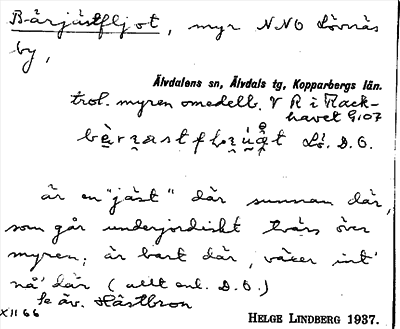 Bärjäs̈tfljot, myr NNO Lövnäs
by,
Älvdalens sn, Älvdals tg, Kopparbergs län.
trol. myren omedelb. V R i Flack-
havet G107
Lö. D. O.
är en "jäst" där summan där,
som går underjordiskt tvärs över
myren; är bart där, växer int'
nå' där (allt enl. D. O.)
Se äv. Hästbron
XII 66
HELGE LINDBERG 1937.